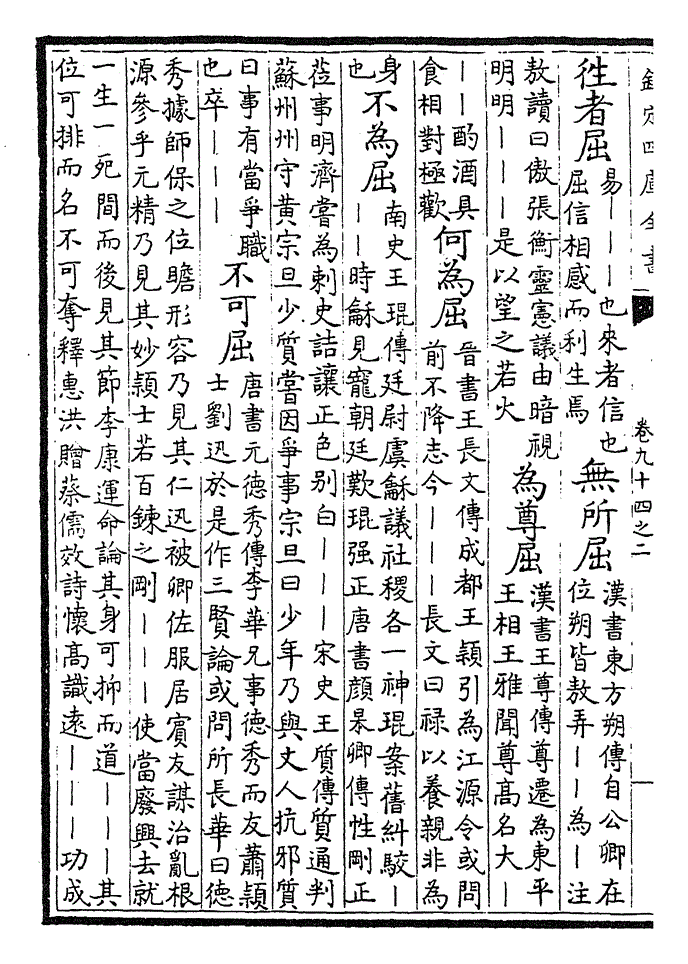 欽定四庫全書
卷九十四之二
徃者屈
易｜｜｜也來者信也
屈信相感而利生焉
無所屈
漢書東方朔傳自公卿在
位朔皆敖弄｜｜為｜注
敖讀曰傲張衡靈憲議由暗視
明明｜｜｜是以望之若火
為尊屈
漢書王尊傳尊遷為東平
王相王雅聞尊髙名大｜
｜｜酌酒具
食相對極歡
何為屈
晉書王長文傳成都王穎引為江源令或問
前不降志今｜｜｜長文曰禄以養親非為
身
也
不為屈
南史王琨傳廷尉虞龢議社稷各一神琨案舊糾駮｜
｜｜時龢見寵朝廷歎琨强正唐書顔杲卿傳性剛正
莅事明濟嘗為刺史詰讓正色别白｜｜｜宋史王質傳質通判
蘇州州守黄宗旦少質嘗因爭事宗旦曰少年乃與丈人抗邪質
曰事有當爭職
也卒｜｜｜
不可屈
唐書元德秀傳李華兄事德秀而友蕭穎
士劉迅於是作三賢論或問所長華曰德
秀據師保之位瞻形容乃見其仁迅被卿佐服居賓友謀治亂根
源參乎元精乃見其妙穎士若百鍊之剛｜｜｜使當廢興去就
一生一死間而後見其節李康運命論其身可抑而道｜｜｜其
位可排而名不可奪釋惠洪贈蔡儒效詩懷髙識遠｜｜｜功成